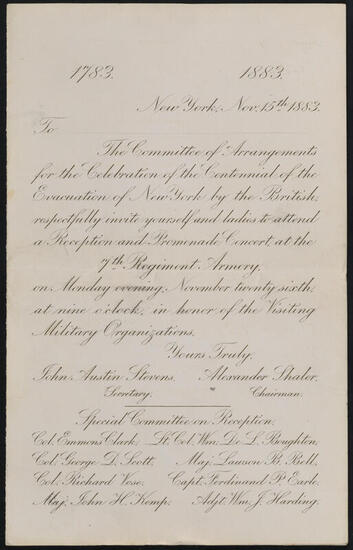 1783. 1883.
New York, Nov. 15th 1883.
To
The Committee of Arrangements
for the Celebration of the Centennial of the
Evacuation of New York by the British,
respectfully invite yourself and ladies to attend
a Reception and Promenade Concert, at the
7th Regiment Armory,
on Monday evening, November twenty sixth,
at nine o'clock, in honor of the Visiting
Military Organizations.
Yours Truly,
John Austin Stevens, Alexander Shaler,
Secretary. Chairman.
Special Committee on Reception.
Col. Emmons Clark, Lt. Col. Wm. De L. Boughton,
Col. George D. Scott, Maj. Lawson B. Bell,
Col. Richard Vose, Capt. Ferdinand P. Earle,
Maj. John H. Kemp, Adjt. Wm. J. Harding.